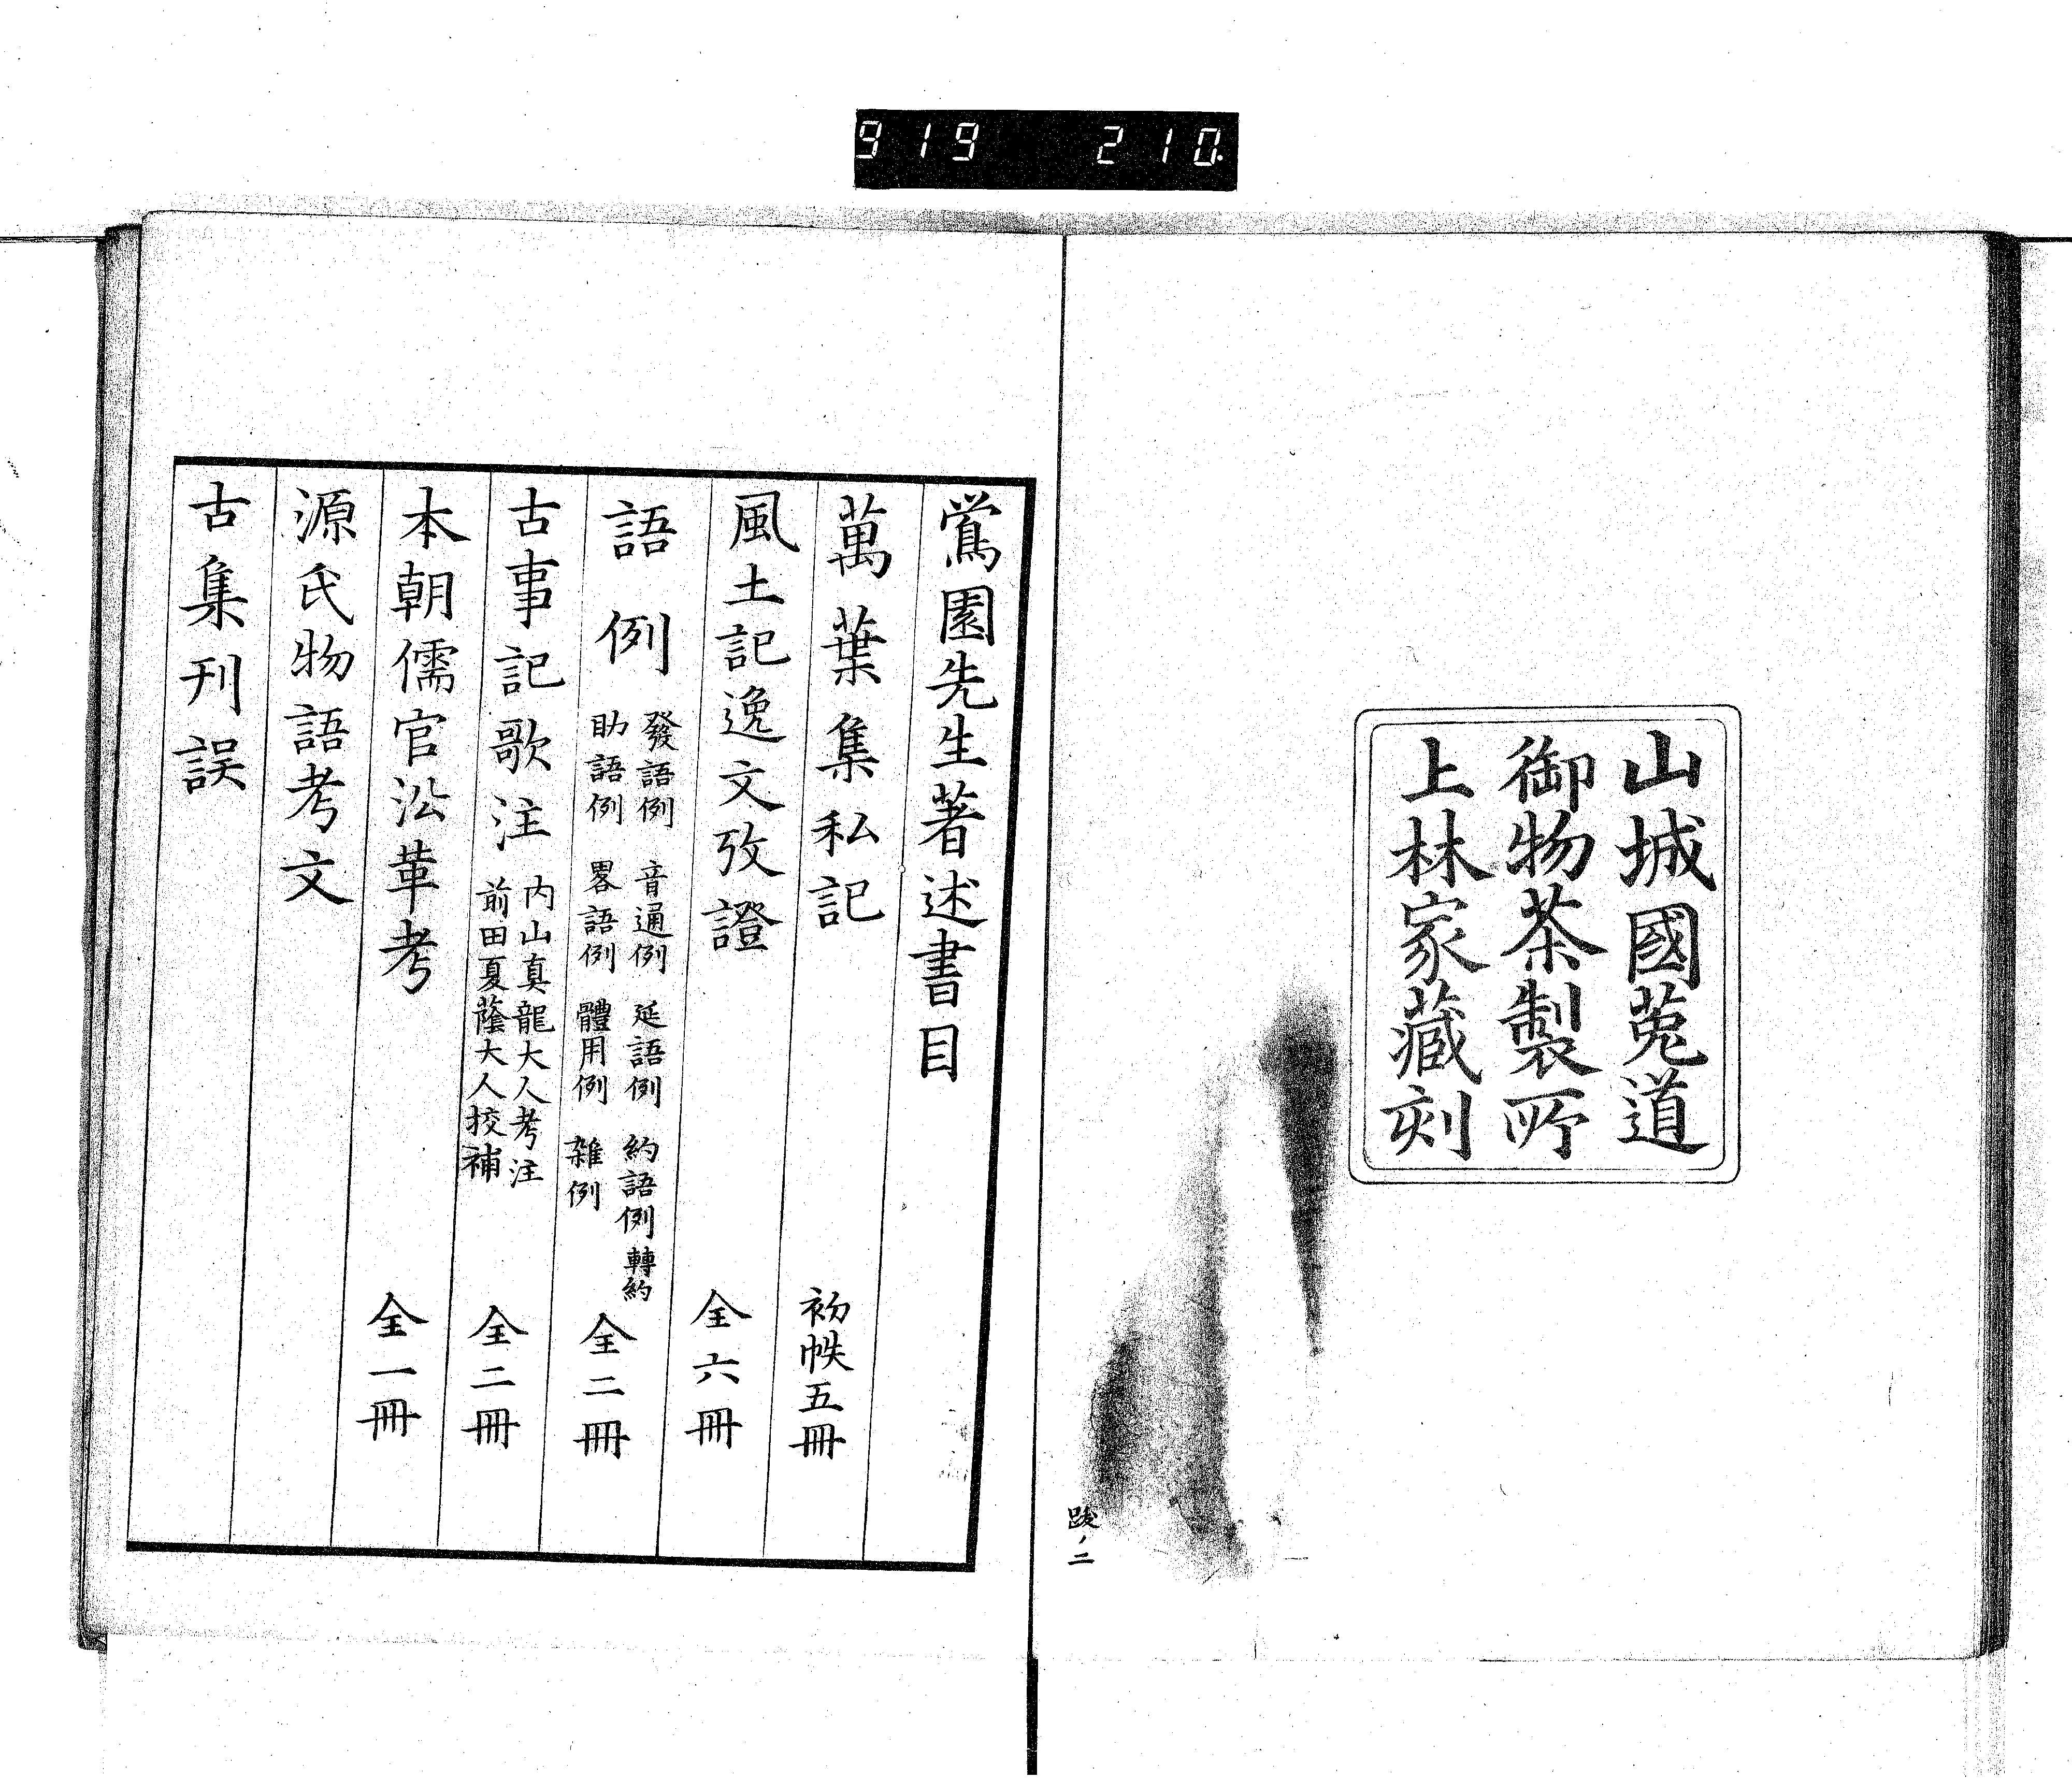 919 210.
山城國菟道
御物茶製所
上林家藏刻
跋ノ二
鶯園先生著述書目
萬葉集私記 初帙五冊
風土記逸文攷證 全六冊
語例 發語例 音通例 延語例 約語例 轉約
助語例 畧語例 體用例 雜例 全二冊
古事記歌注 内山真龍大人考注
前田夏蔭大人挍補 全二冊
本朝儒官沿革考 全一冊
源氏物語考文
古集刊誤